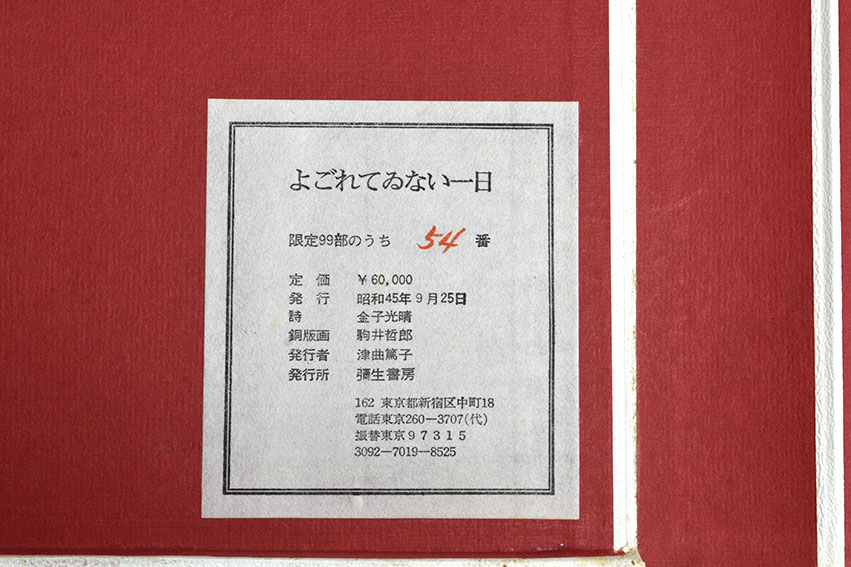 よごれてゐない一日
限定99部のうち 54 番
定価 ￥60,000
発行 昭和45年9月25日
詩 金子光晴
銅版画 駒井哲郎
発行者 津曲篤子
発行所 彌生書房
162 東京都新宿区中町18
電話東京260―3707(代)
振替東京97315
3092―7019―8525